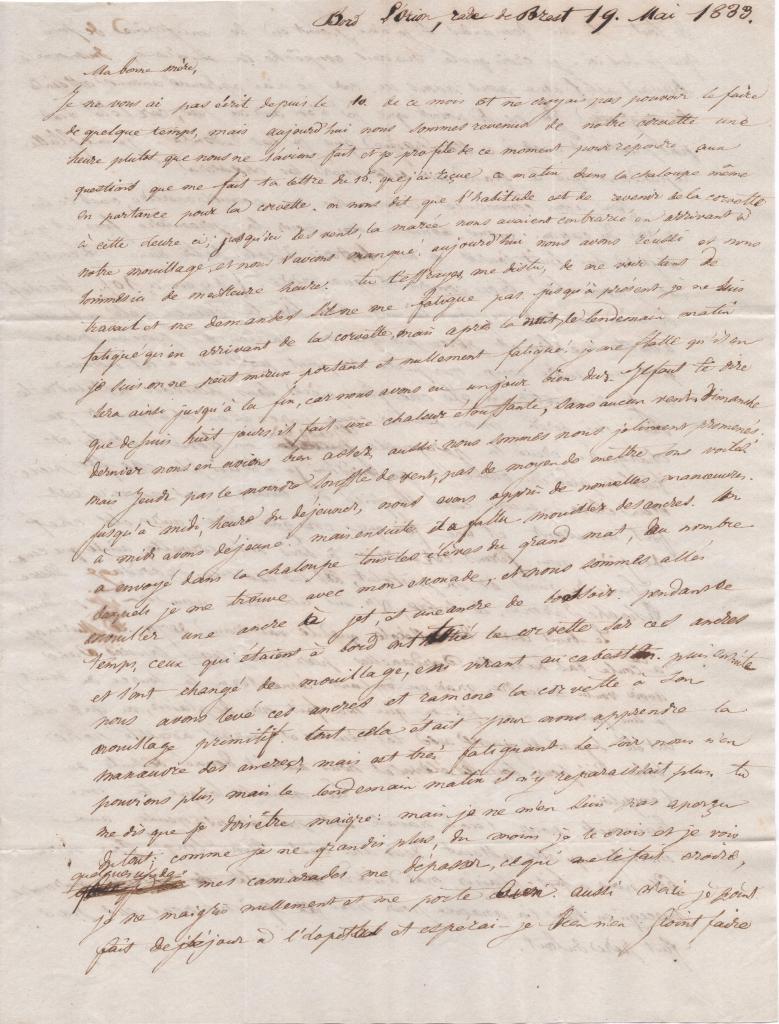 Bord L'Orion, rade de Brest 19. Mai 1833.
Ma bonne mère,
Je ne vous ai pas écrit depuis le 10 de ce mois et ne croyais pas pouvoir le faire
de quelque temps, mais aujourd'hui nous sommes revenus de notre corvette une
heure plutôt que nous ne l'avions fait et je profite de ce moment pour répondre aux
questions que me fait ta lettre du 15. que j'ai reçue ce matin dans la chaloupe même
en partance pour la corvette. on nous dit que l'habitude est de revenir de la corvette
à cette heure ci, jusqu'ici les vents, la marée nous avaient contrarié en arrivant à
notre mouillage, et nous l'avions manqué. aujourd'hui nous avons réussi et nous
sommes ici de meilleure heure. tu t'effrayes, me dis tu, de me voir tant de
travail et me demandes s'il ne me fatigue pas. jusqu'à présent je ne suis
fatigué qu'en arrivant de la corvette, mais après la nuit, le lendemain matin
je suis on ne peut mieux portant et nullement fatigué. je me flatte qu'il en
sera ainsi jusqu'à la fin, car nous avons eu un jour bien dur. Il faut te dire
que depuis huit jours, il fait une chaleur étouffante, sans aucun vent. Dimanche
dernier nous en avions bien assez, aussi nous sommes nous joliment promenés
mais Jeudi pas le moindre souffle de vent, pas de moyen de mettre sous voiles.
jusqu'à midi, heure du déjeuner, nous avons appris de nouvelles manœuvres.
à midi avons déjeuné. mais ensuite il a fallu mouiller des ancres. On
a envoyé dans la chaloupe tous les élèves du grand mat, du nombre
desquels je me trouve avec mon escouade, et nous sommes allés
mouiller une ancre à jet, et une ancre de bossoir. pendant ce
temps, ceux qui étaient à bord ont la corvette sur ces ancres
et l'ont changé de mouillage, en virant au cabestan. puis ensuite
nous avons levé ces ancres et ramené la corvette à son
mouillage primitif. tout cela était pour nous apprendre la
manœuvre des ancres, mais est très fatiguant. le soir nous n'en
pouvions plus, mais le lendemain matin il n'y reparaissait plus. tu
me dis que je dois être maigre: mais je ne m'en suis pas aperçu
du tout; comme je ne grandis plus, du moins je le crois et je vois
quelques uns de mes camarades me dépasser, ce qui me le fait croire,
je ne maigris nullement et me porte bien. aussi n'ai je point
fait de séjour à l'hopital et espérai-je bien n'en point faire